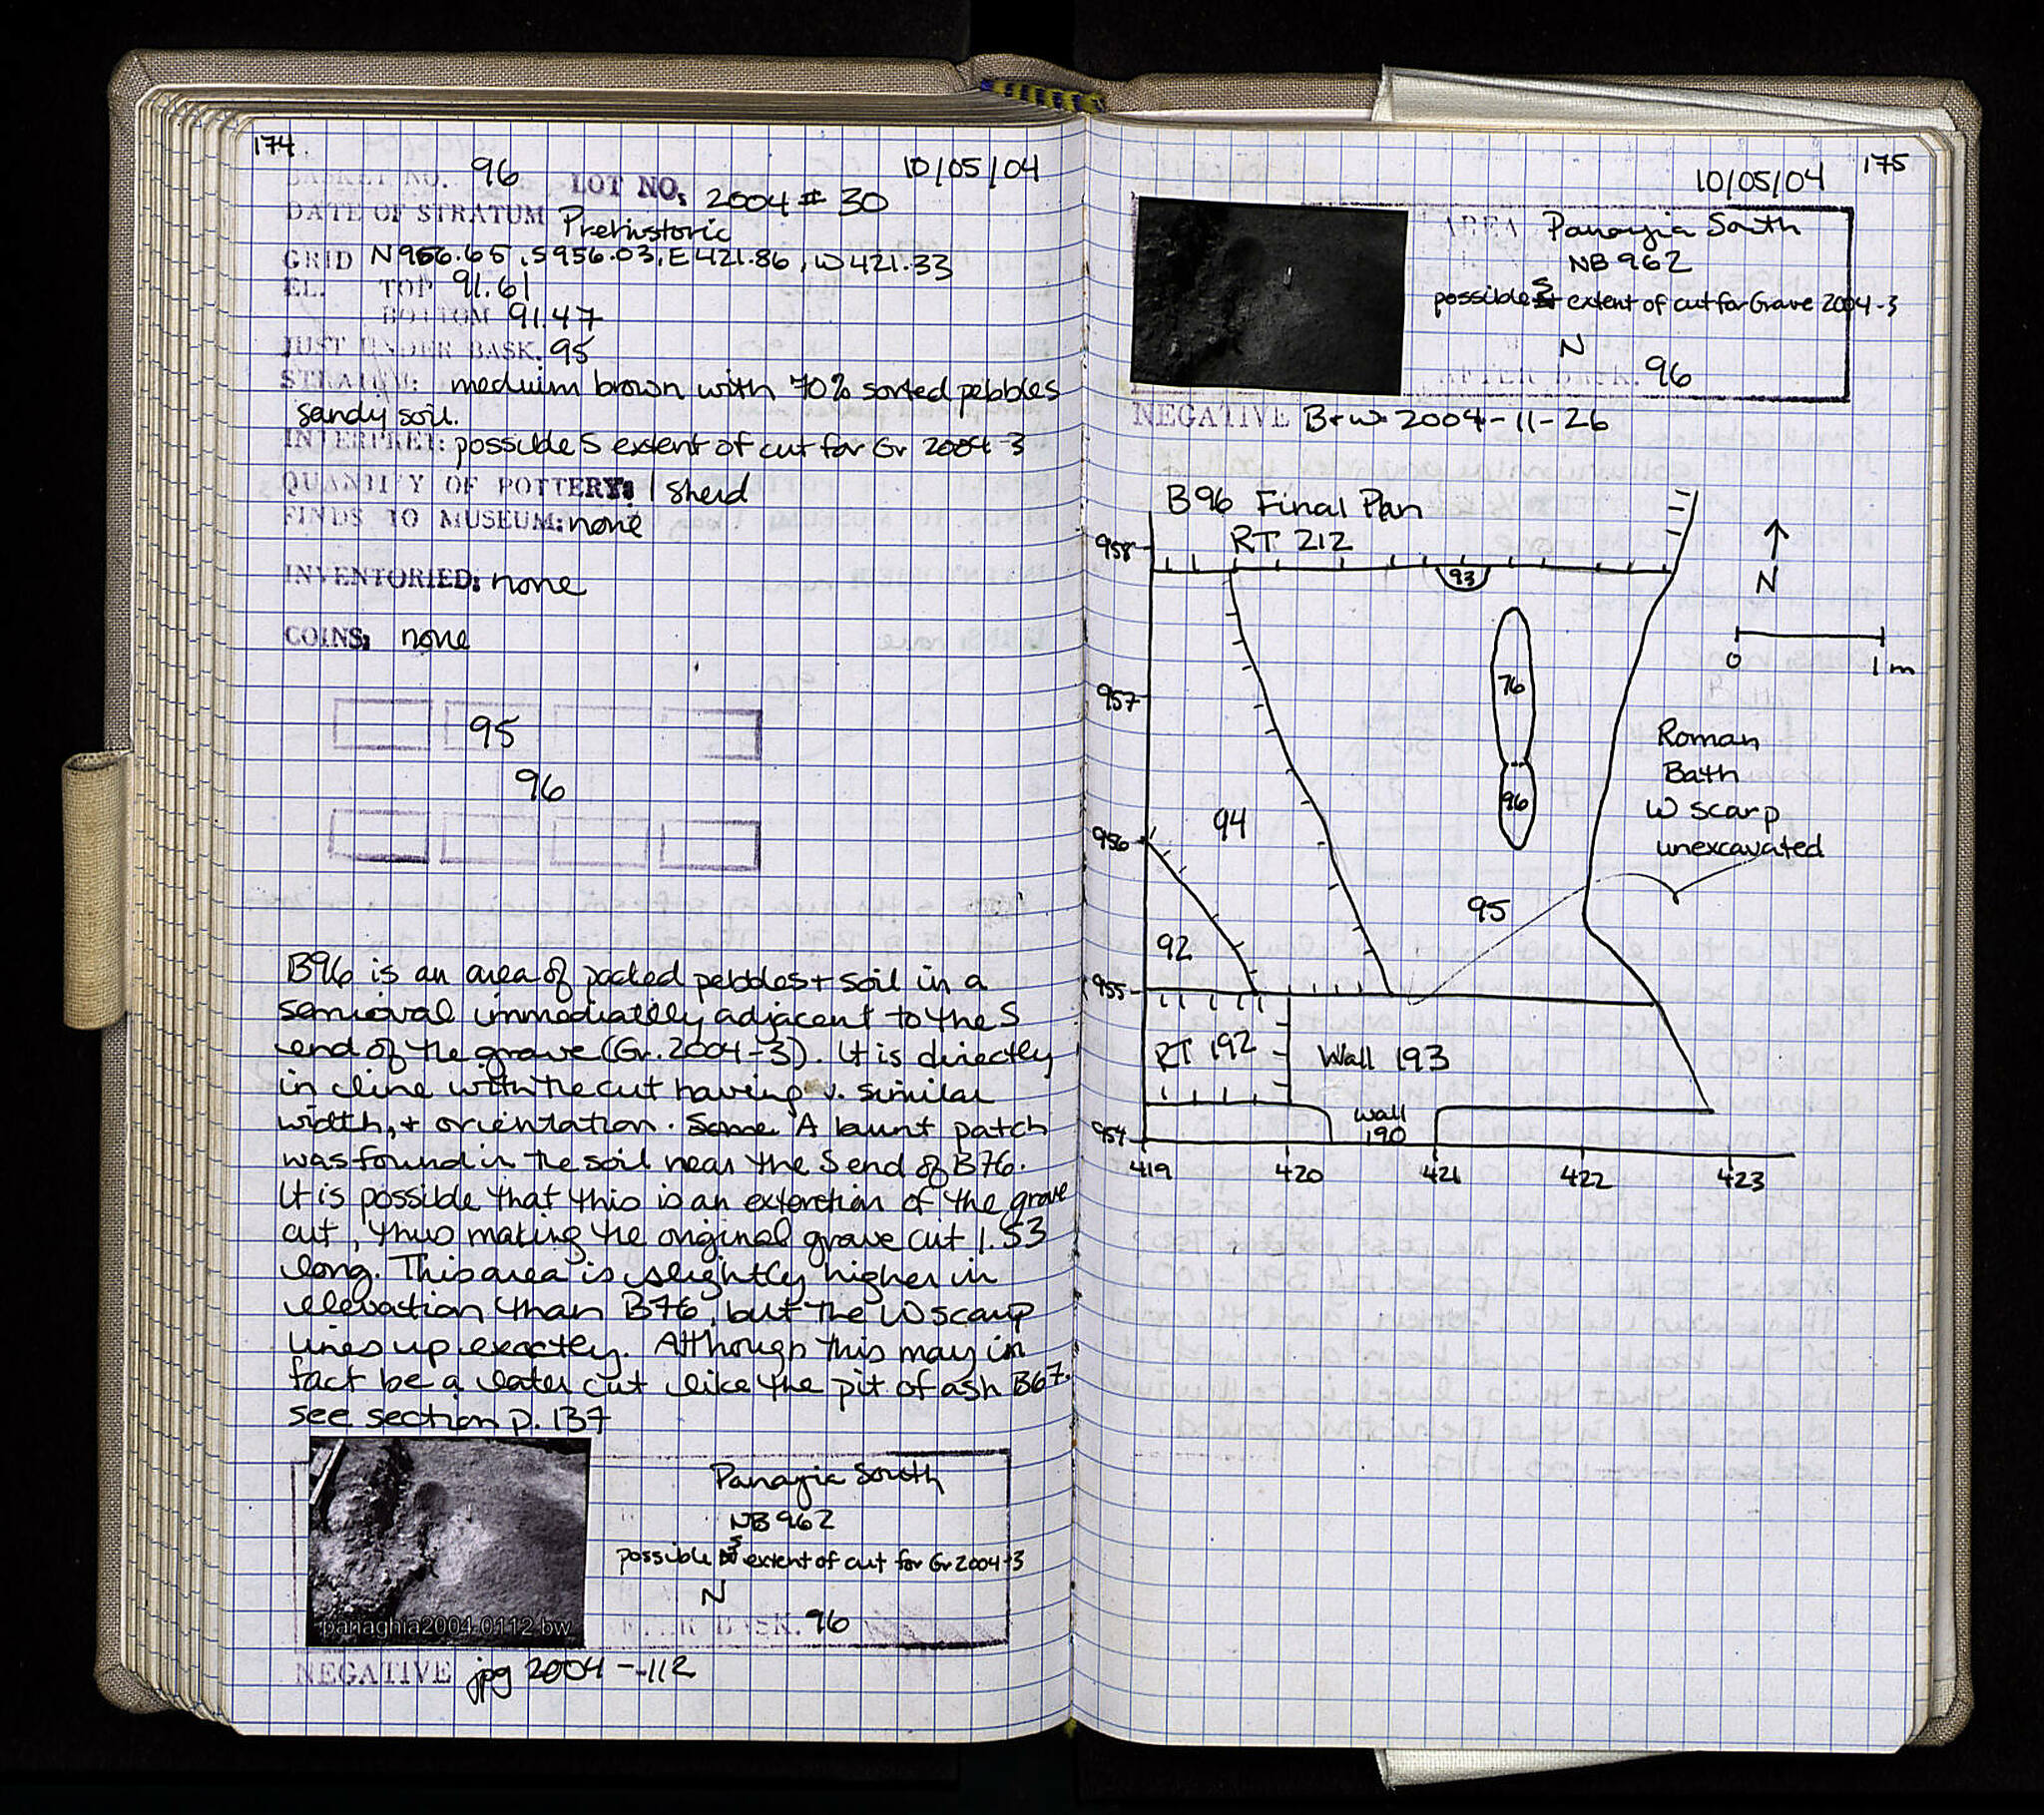 174.
96 LOT NO. 2004 # 30 10/05/04
BASKET NO.
DATE OF STRATUM Prehistoric
GRID N956.65, S956.03, E421.86, W421.33
EL. TOP 91.61
BOTTOM 91.47
JUST UNDER BASK. 95
STRATUM: meduim brown with 70% sorted pebbles
sandy soil.
INTERPRET: possible S extent of cut for Gr 2004-3
QUANTITY OF POTTERY: 1 sherd
FINDS TO MUSEUM: none
INVENTORIED: none
COINS: none
95
96
B96 is an area of packed pebbles + soil in a
semioval immediately adjacent to the S
end of the grave (Gr. 2004-3). It is directly
in line with the cut having v. similar
width, + orientation. Some A burnt patch
was found in the soil near the S end of B76.
It is possible that this is an extention of the grave
cut, thus making the original grave cut 1.53
long. This area is slightly higher in
elevation than B76, but the W scarp
lines up exactly. Although this may in
fact be a later cut like the pit of ash B67.
see section p. 137
Panayia South
NB 962
possible S extent of cut for Gr 2004-3
N
AFTER BASK. 96
panaghia2004 0112 bw
NEGATIVE jpg 2004--112
175
10/05/04
AREA Panayia South
NB 962
possible S extent of cut for Grave 2004-3
N
AFTER BASK. 96
NEGATIVE B+W 2004-11-26
B96 Final Plan
958 RT 212
93
N
0 1 m
76
957
Roman
Bath
W scarp
unexcavated
96
94
956
95
92
955
RT 192 Wall 193
wall
190
954
419 420 421 422 423